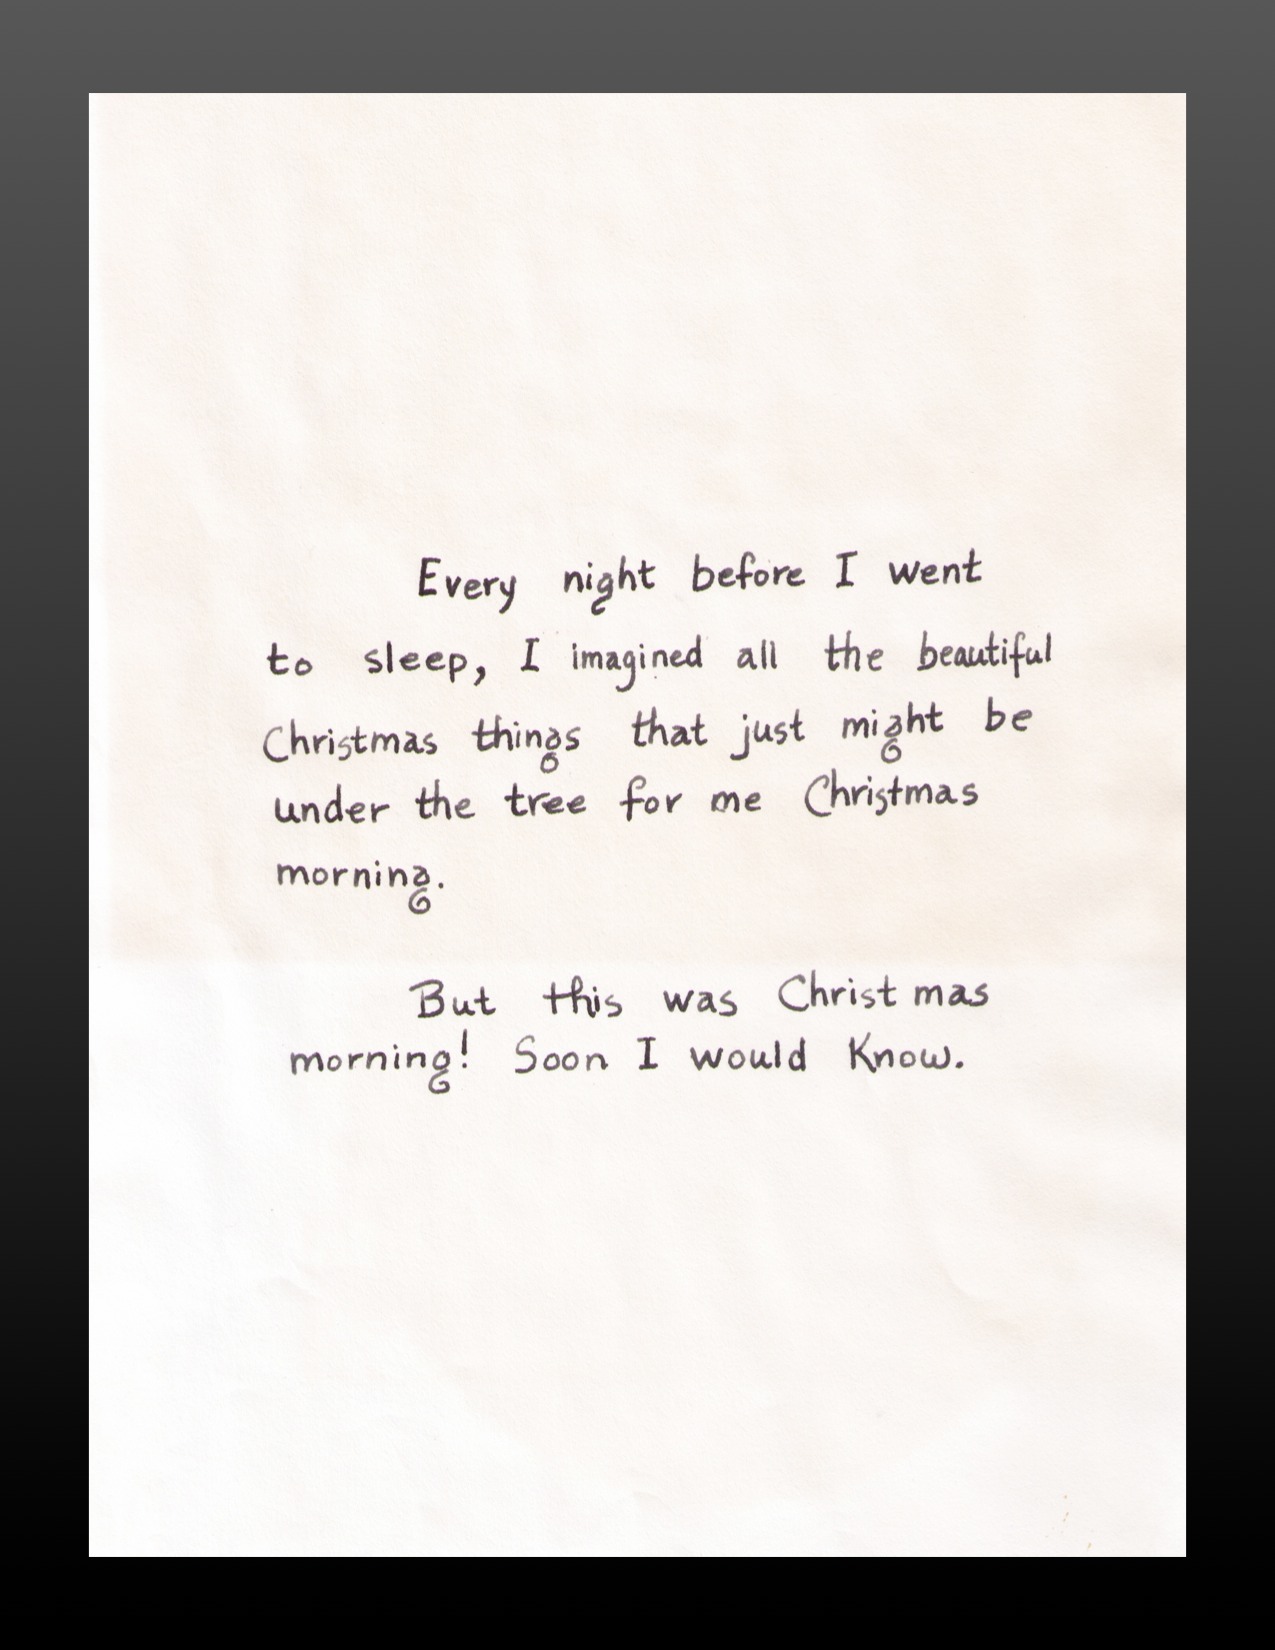 Every night before I went
to sleep, I imagined all the beautiful
Christmas things that just might be
under the tree for me Christmas
morning.
But this was Christmas
morning! Soon I would Know.